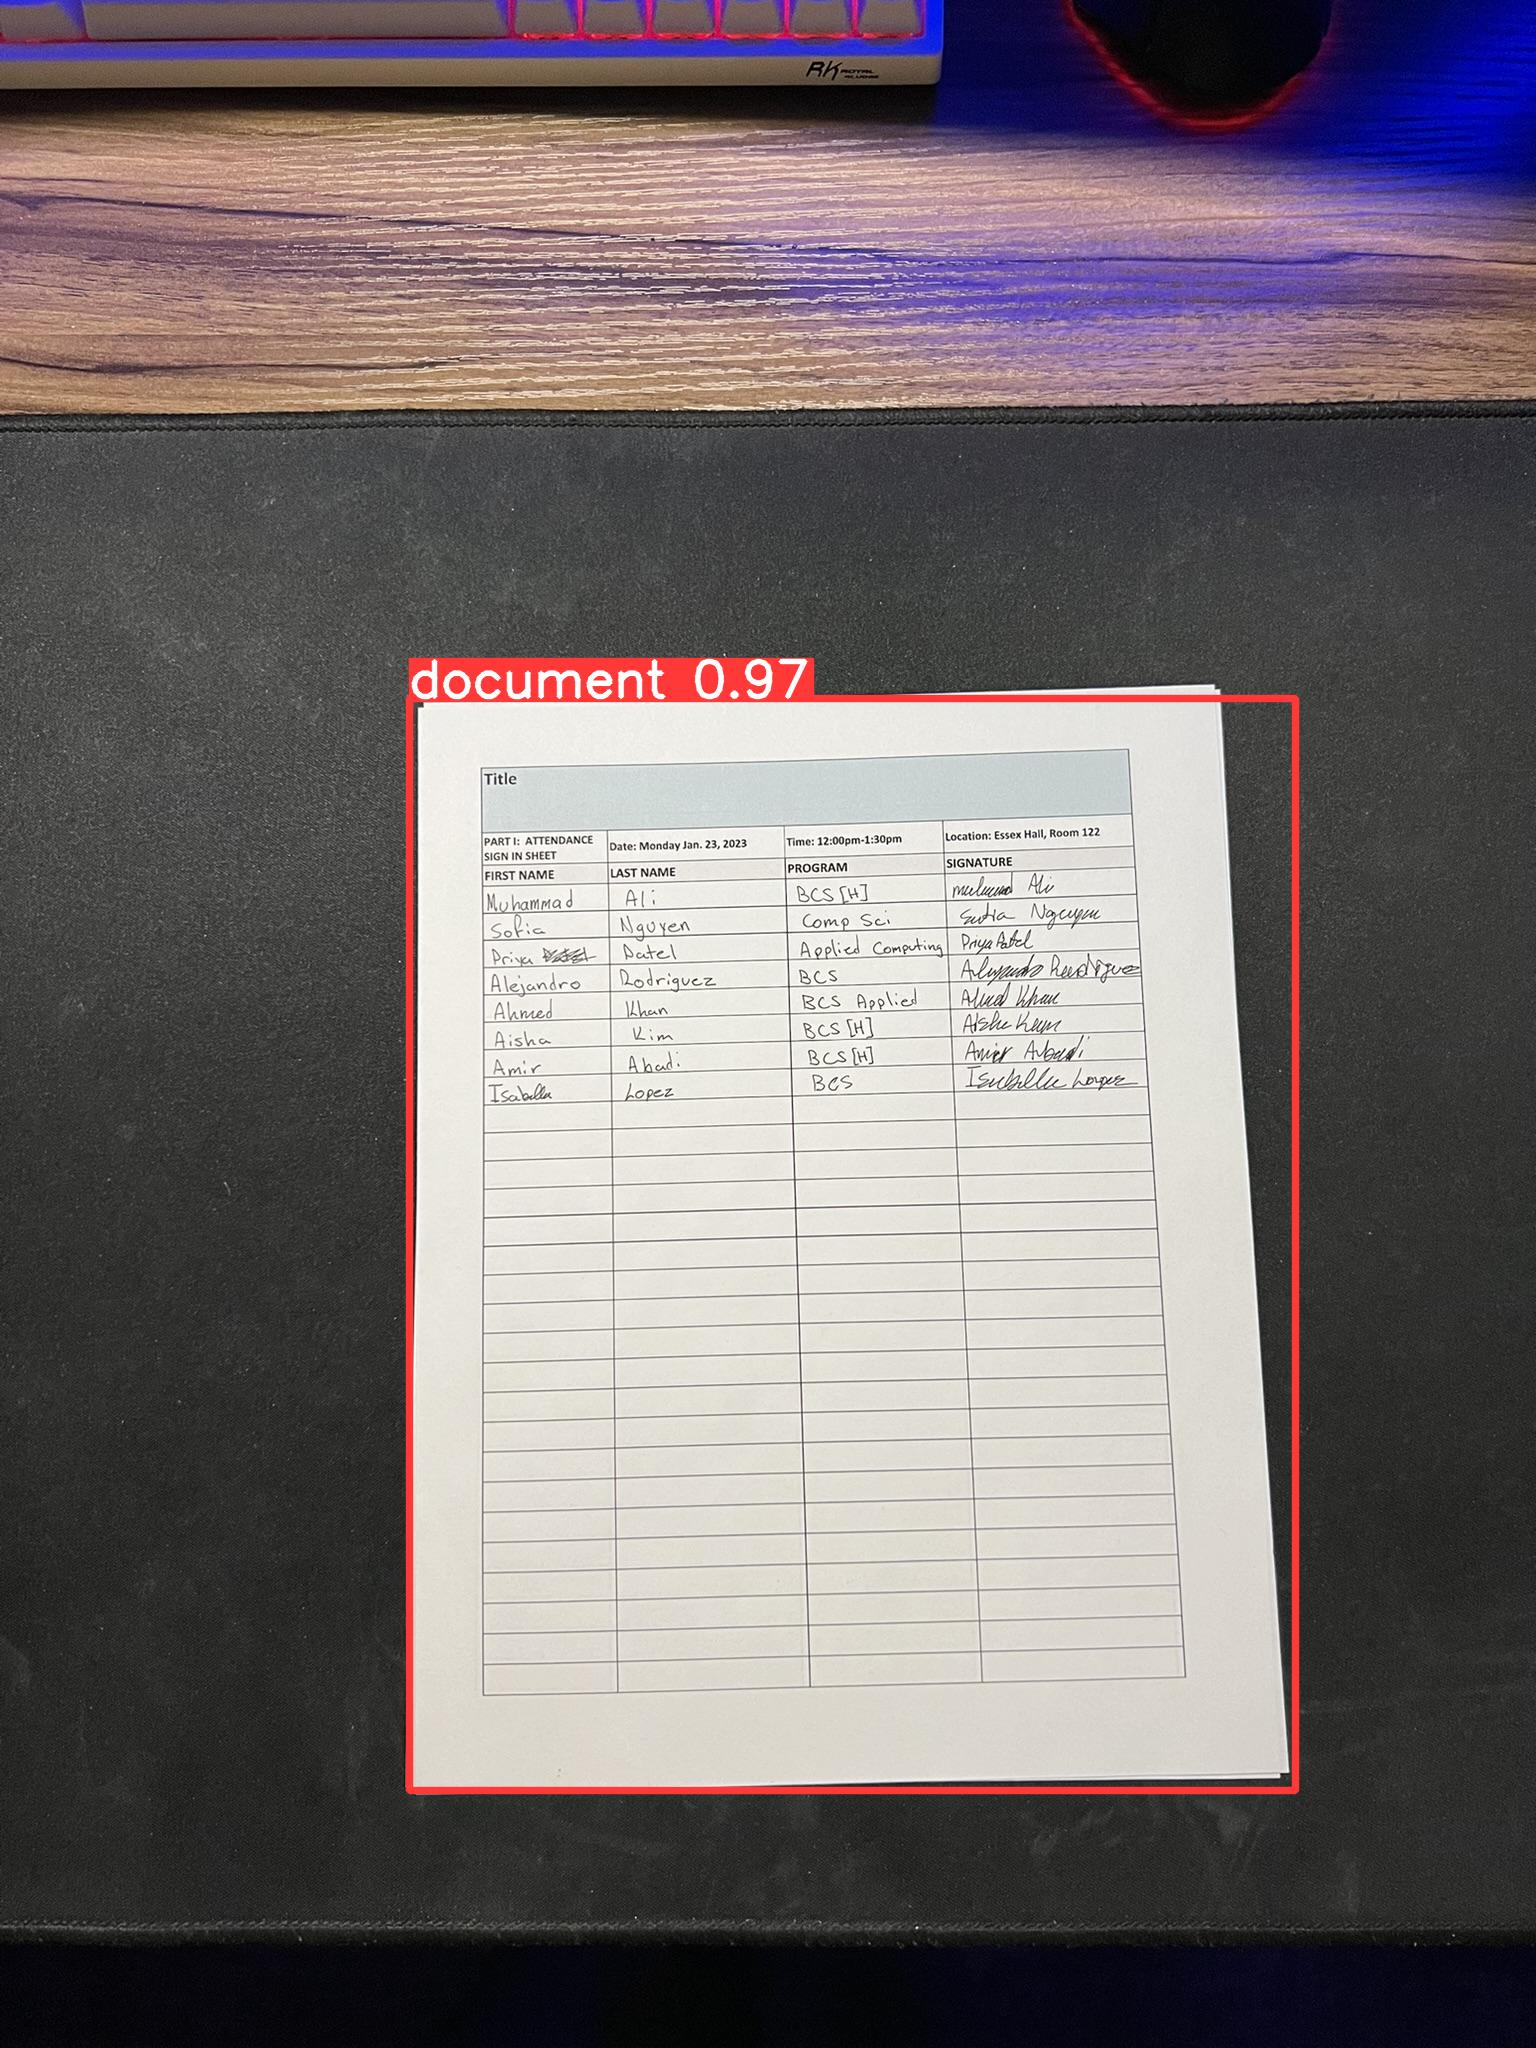 RK ROYAL KLUDGE
document 0.97
Title
PART I: ATTENDANCE SIGN IN SHEET Date: Monday Jan. 23, 2023 Time: 12:00pm-1:30pm Location: Essex Hall, Room 122
FIRST NAME LAST NAME PROGRAM SIGNATURE
Muhammad Ali BCS [H] Ali
Sofia Nguyen Comp Sci Sofia Nguyen
Priya Patel Applied Computing Priya Patel
Alejandro Rodriguez BCS Alejandro Rodriguez
Ahmed Khan BCS Applied Ahmed Khan
Aisha Kim BCS [H] Aisha
Amir Abadi BCS [H] Amir Abadi
Isabella Lopez BCS Isabella Lopez